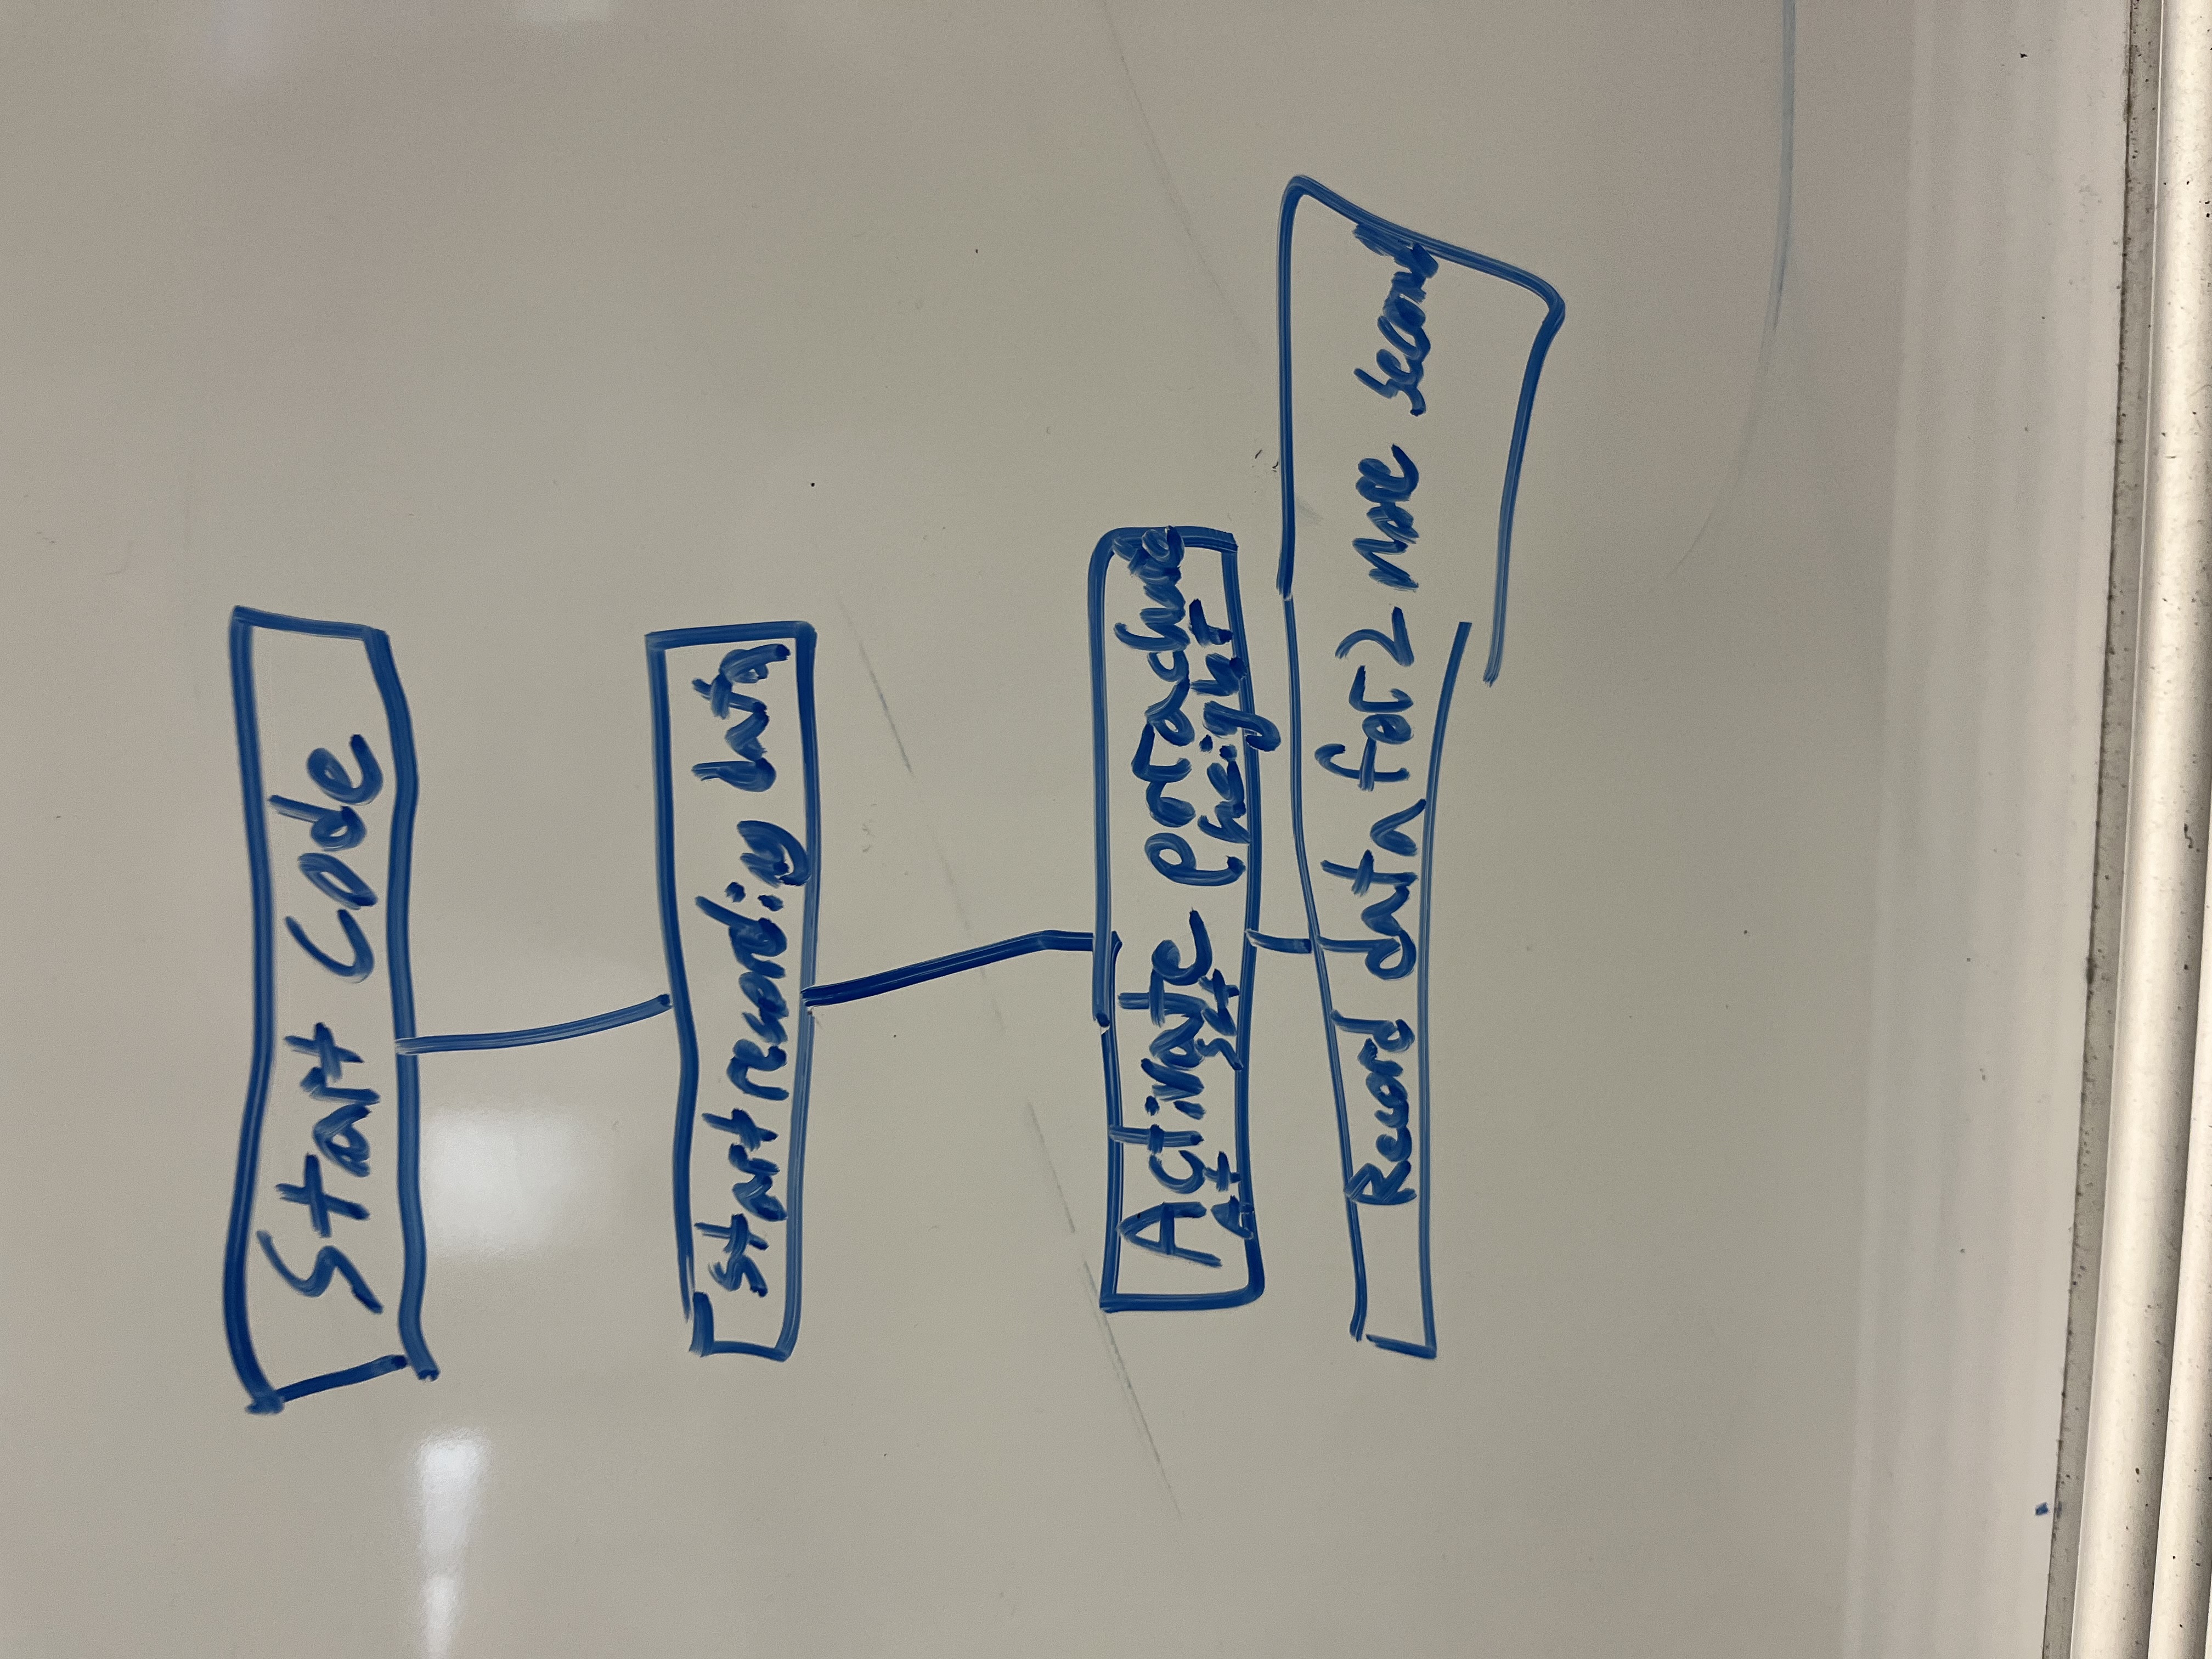 Start Code
Start recording data
Activate parachute
At set height
Record data for 2 more second